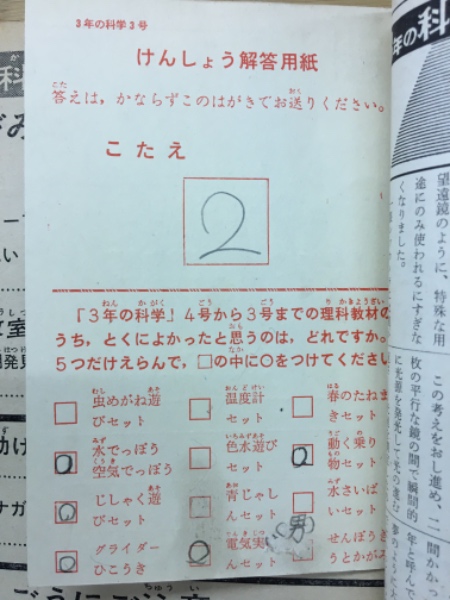 3年の科学3号
けんしょう解答用紙
答えは，かならずこのはがきでお送りください。
こたえ
2
「3年の科学」4号から3号までの理科教材の
うち，とくによかったと思うのは，どれですか。
5つだけえらんで，□の中に○をつけてください
虫めがね遊
びセット
温度計
セット
春のたねま
きセット
水でっぽう
空気でっぽう
色水遊び
セット
動く乗り
物セット
じしゃく遊
びセット
青じゃし
んセット
水さいば
いセット
グライダー
ひこうき
電気実
んセット
(男)
せんぼうき
うとかがみ
年の科
望遠鏡のように，特殊な用
途にのみ使われるにすぎな
くなりました。
この考えをおし進め，二
枚の平行な鏡の間で瞬間的
に光源を発光して光の進む
間かかっ
年と呼んで